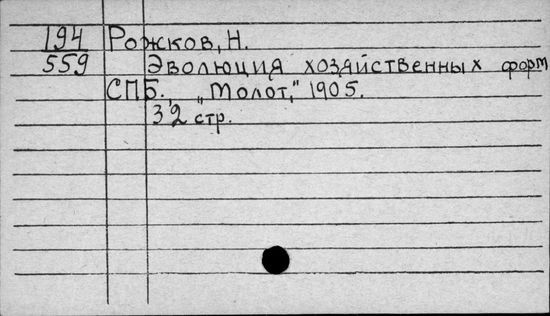 194 Рожков, Н.
559 Эволюция хозяйственных форм
СПБ., „Молот," 1905.
32 стр.